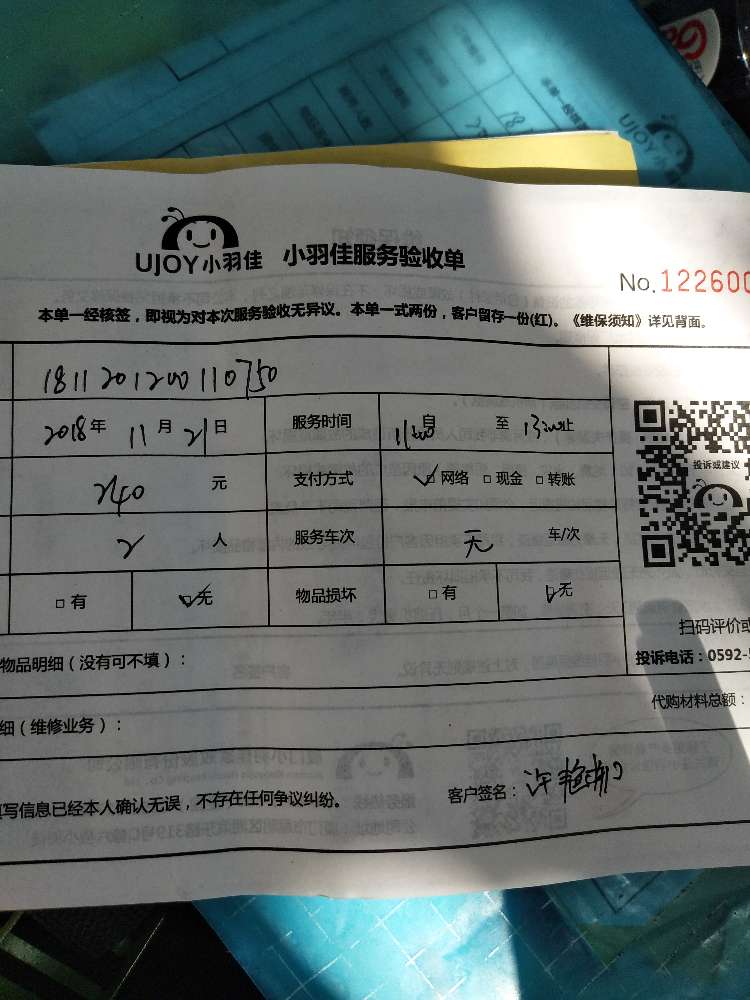 UJOY小羽佳 小羽佳服务验收单
No.122600
本单一经核签，即视为对本次服务验收无异议。本单一式两份，客户留存一份(红)。《维保须知》详见背面。
1811201200110750
2018年 11月 21日 服务时间 11:00 自 至 13:00 止
240 元 支付方式 ☑网络 □现金 □转账
2 人 服务车次 无 车/次
□有 ☑无 物品损坏 □有 ☑无
投诉或建议
扫码评价或
投诉电话：0592-5
物品明细（没有可不填）：
代购材料总额：
细（维修业务）：
填写信息已经本人确认无误，不存在任何争议纠纷。 客户签名：